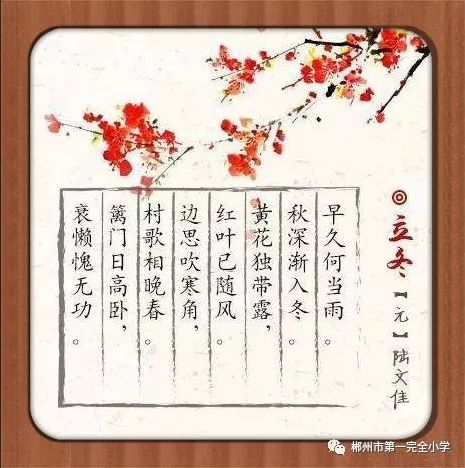 ◎立冬【元】陆文佳
早久何当雨。
秋深渐入冬。
黄花独带露，
红叶已随风。
边思吹寒角，
村歌相晚春。
篱门日高卧，
衰懒愧无功。
郴州市第一完全小学